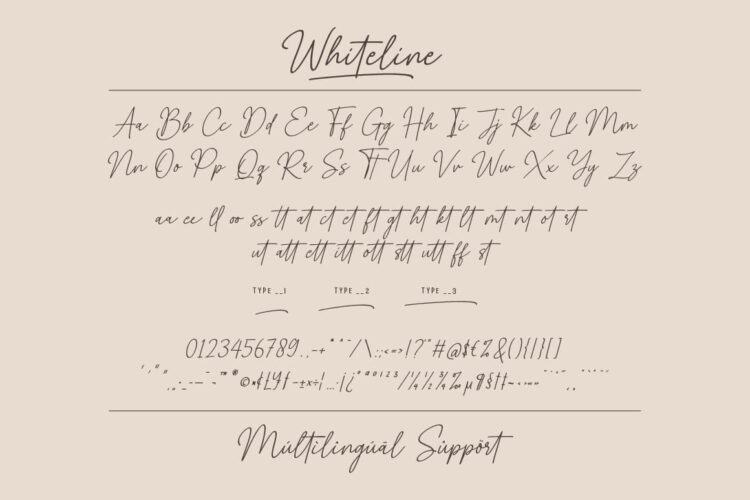 Whiteline
Aa Bb Cc Dd Ee Ff Gg Hh Ii Jj Kk Ll Mm
Nn Oo Pp Qq Rr Ss Tt Uu Vv Ww Xx Yy Zz
aa ee ll oo ss tt at ct et ft gt ht kt lt mt nt ot rt
ut att ett itt ott stt utt ff st
TYPE __1 TYPE __2 TYPE __3
0123456789.,-+*^~/\:;<=>!?"#@$£%&(){|}[]
Múltìlingúāl Sûppört